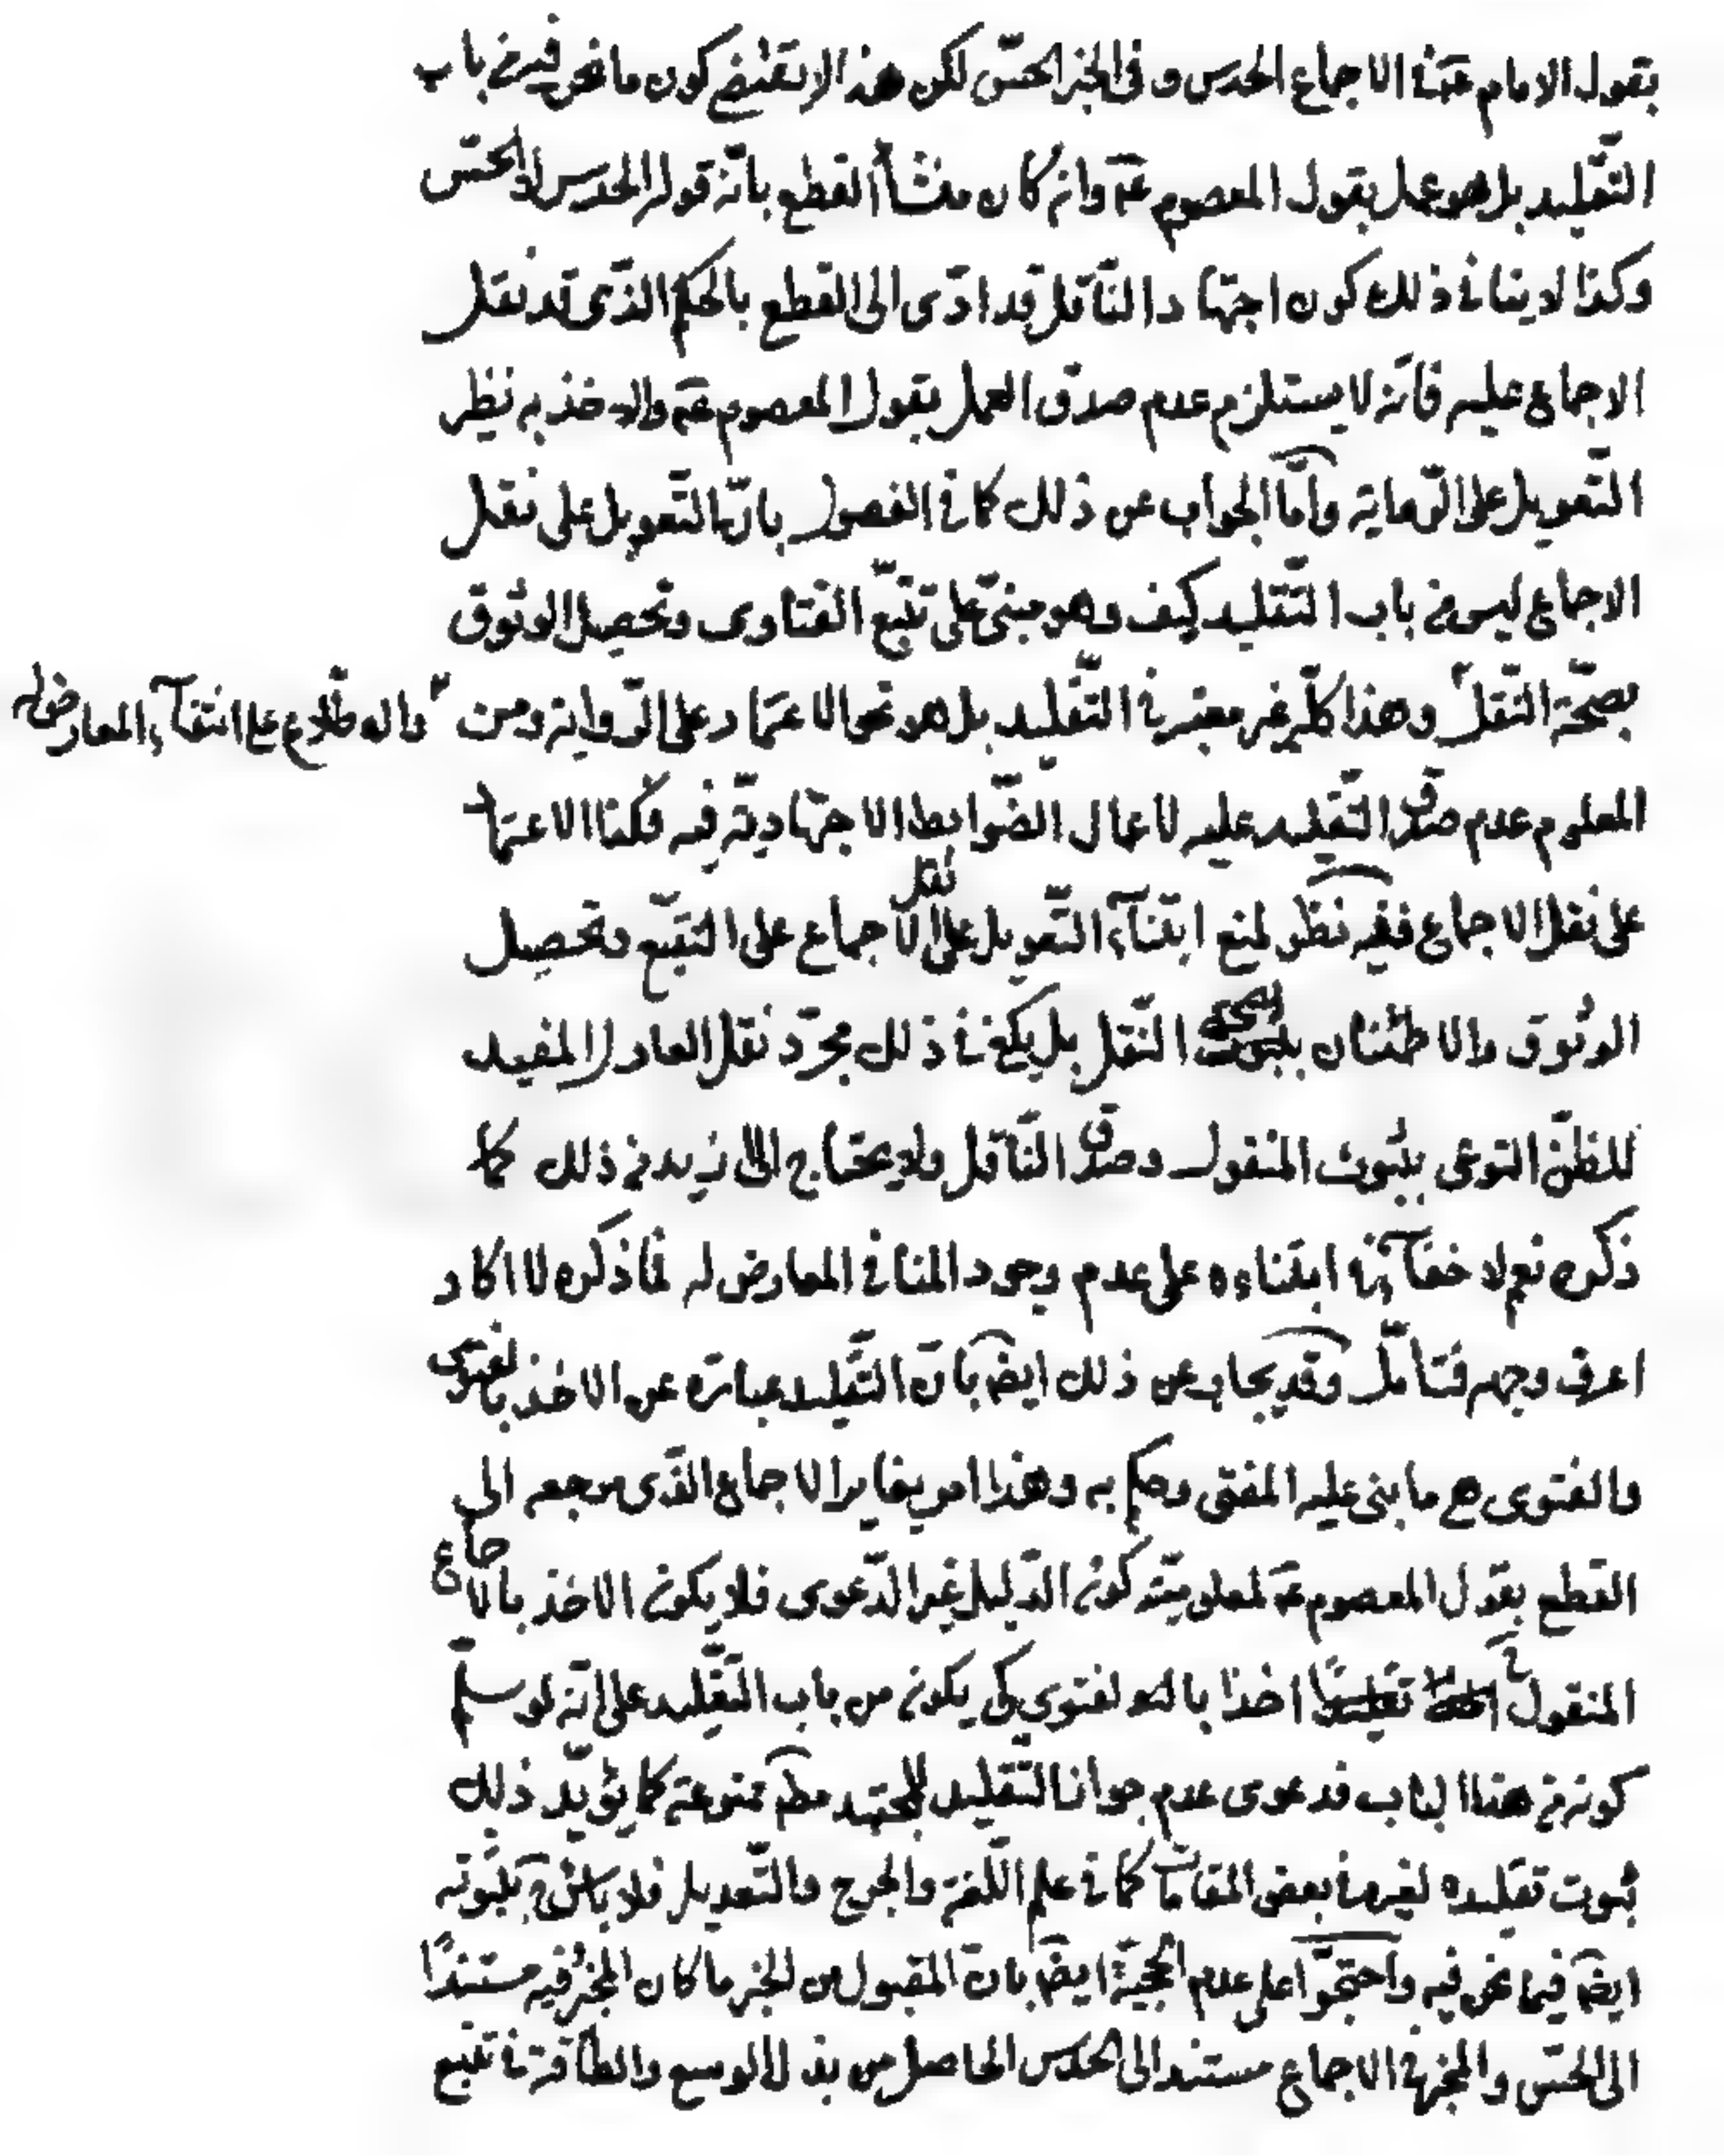 بقول الامام عمّ في الاجماع الحدس وفي الخبر الحسّ لكن هذا لا يقتضي كون ما نحن فيه من باب
التّقليد بل هو عمل بقول المعصوم عمّ وان كان منشأ القطع بانّه قوله الحدس لا الحسّ
وكذا لا ينافي ذلك كون اجتهاد النّاقل قد ادّى الى القطع بالحكم الذّى قد نقل
الاجماع عليه فانّه لا يستلزم عدم صدق العمل بقول المعصوم عمّ والاخذ به نظير
التّعويل على الرّواية وامّا الجواب عن ذلك كما في الفصول بانّ التّعويل على نقل
الاجماع ليس من باب التّقليد كيف وهو مبنىّ على تتبّع الفتاوى وتحصيل الوثوق
بصحّة النّقل وهذا كلّه غير معتبر في التّقليد بل هو نحو الاعتماد على الرّواية ومن
والاطّلاع على انتفآء المعارض له
المعلوم عدم صدق التّقليد عليه لاعمال الضّوابط الاجتهاديّة فيه فكذا الاعتماد
على نقل الاجماع ففيه نظر لمنع ابتنآء التّعويل على نقل الاجماع على التتبّع وتحصيل
الوثوق والاطمئنان بصحة النّقل بل يكفى في ذلك مجرّد نقل العادل المفيد
للظنّ النوعى بثبوت المنقول وصدق النّاقل ولا يحتاج الى ازيد من ذلك كما
ذكره نعم لا خفآء في ابتناءه على عدم وجود المنافي المعارض له فما ذكره لا اكاد
اعرف وجهه فتامّل وقد يجاب عن ذلك ايضً بانّ التّقليد عبارة عن الاخذ بالفتوى
والفتوى هي ما بنى عليه المفتى وحكم به وهذا امر يغاير الاجماع الذّى مرجعه الى
القطع بقول المعصوم عمّ لمعلوميّة كون الدّليل غير الدّعوى فلا يكون الاخذ بالاجماع
المنقول ح اخذا بالفتوي كى يكون من باب التّقليد على انّه لو سلّم
كونه من هذا الباب فدعوى عدم جواز التّقليد للمجتهد مطَ ممنوعة كما يؤيّد ذلك
ثبوت تقليده لغيره في بعض المقامات كما في علم اللّغة والجرح والتّعديل فلا باس ح بثبوته
ايضً فيما نحن فيه واحتجّوا على عدم الحجيّة ايضً بانّ المقبول من الخبر ما كان المخبر فيه مستندًا
الى الحسّ والمخبر في الاجماع مستند الى الحدس الحاصل من بذل الوسع والطّاقة في تتبع